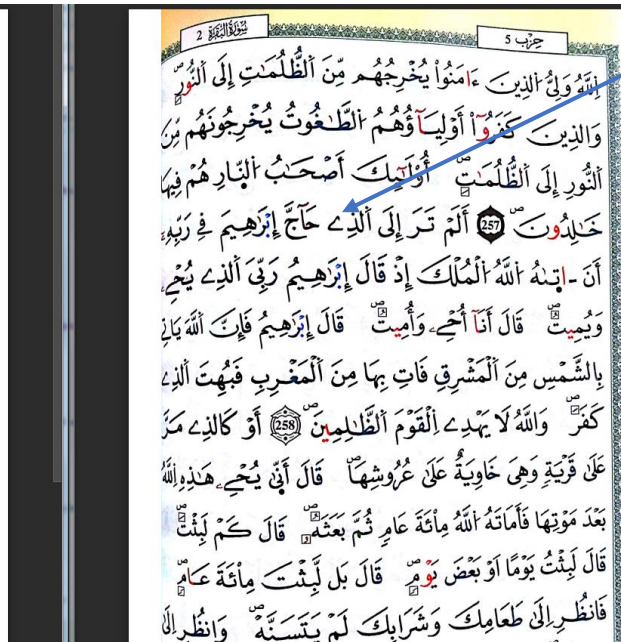 سُورَةُ البَقَرَةِ 2
حِزْب 5
اِ۬للَّهُ وَلِيُّ اُ۬لذِينَ ءَامَنُواْ يُخْرِجُهُم مِّنَ اَ۬لظُّلُمَٰتِ إِلَى اَ۬لنُّورِۖ
وَالذِينَ كَفَرُوٓاْ أَوْلِيَآؤُهُمُ اُ۬لطَّٰغُوتُ يُخْرِجُونَهُم مِّنَ
اَ۬لنُّورِ إِلَى اَ۬لظُّلُمَٰتِۖ أُوْلَٰٓئِكَ أَصْحَٰبُ اُ۬لنّ۪ارِ هُمْ فِيهَا
خَٰلِدُونَۖ 257 أَلَمْ تَرَ إِلَى اَ۬لذِے حَآجَّ إِبْرَٰهِيمَ فِے رَبِّهِۦٓ
أَنَ اٰت۪يٰهُ اُ۬للَّهُ اُ۬لْمُلْكَ إِذْ قَالَ إِبْرَٰهِيمُ رَبِّيَ اَ۬لذِے يُحْيِۦ
وَيُمِيتُۖ قَالَ أَنَآ أُحْيِۦ وَأُمِيتُۖ قَالَ إِبْرَٰهِيمُ فَإِنَّ اَ۬للَّهَ يَاتِے
بِالشَّمْسِ مِنَ اَ۬لْمَشْرِقِ فَاتِ بِهَا مِنَ اَ۬لْمَغْرِبِ فَبُهِتَ اَ۬لذِے
كَفَرَۖ وَاللَّهُ لَا يَهْدِے اِ۬لْقَوْمَ اَ۬لظَّٰلِمِينَۖ 258 أَوْ كَالذِے مَرَّ
عَلَىٰ قَرْيَةٖ وَهْيَ خَاوِيَةٌ عَلَىٰ عُرُوشِهَاۖ قَالَ أَنّ۪يٰ يُحْيِۦ هَٰذِهِ اِ۬للَّهُ
بَعْدَ مَوْتِهَا فَأَمَاتَهُ اُ۬للَّهُ مِاْئَةَ عَامٖ ثُمَّ بَعَثَهُۥۖ قَالَ كَمْ لَبِثْتَۖ
قَالَ لَبِثْتُ يَوْماً اَوْ بَعْضَ يَوْمٖۖ قَالَ بَل لَّبِثْتَ مِاْئَةَ عَامٖۖ
فَانظُرِ اِلَىٰ طَعَامِكَ وَشَرَابِكَ لَمْ يَتَسَنَّهْۖ وَانظُرِ اِلَىٰ